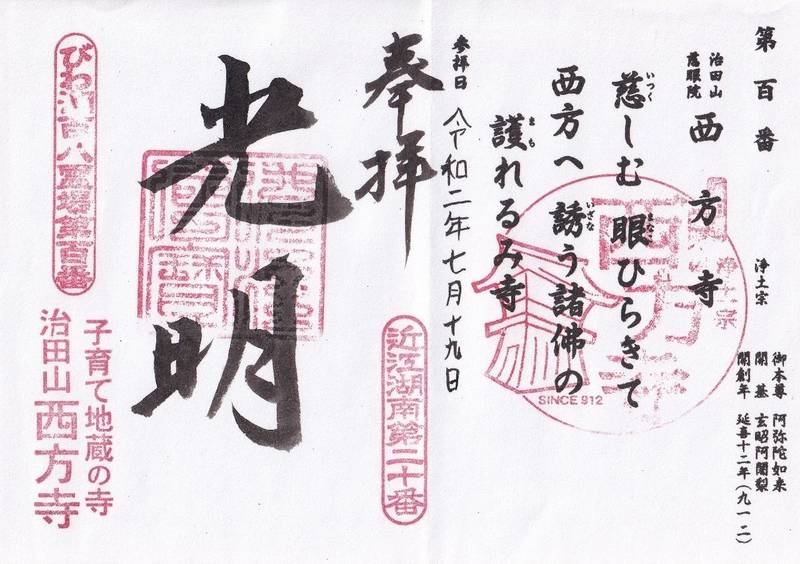 第百番
治田山
慈眼院
西方寺
浄土宗
御本尊 阿弥陀如来
開基 玄昭阿闍梨
開創年 延喜十二年(九一二)
慈しむ 眼ひらきて
いつく まなこ
西方へ 誘う諸佛の
いざな
護れるみ寺
まも
西方寺
浄土宗
SINCE 912
参拝日 令和二年七月十九日
奉拝
近江湖南第二十番
光明
佛法僧寶
びわ湖百八霊場第百番
子育て地蔵の寺
治田山 西方寺